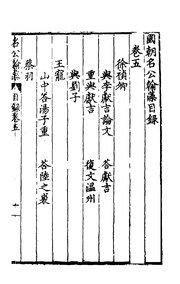 國朝名公翰藻目錄
卷五
徐禎卿
與李獻吉論文
答獻吉
重與獻吉
復文温州
與劉子
王寵
山中答湯子重
答陸之裘
蔡羽
名公翰藻
目錄卷五